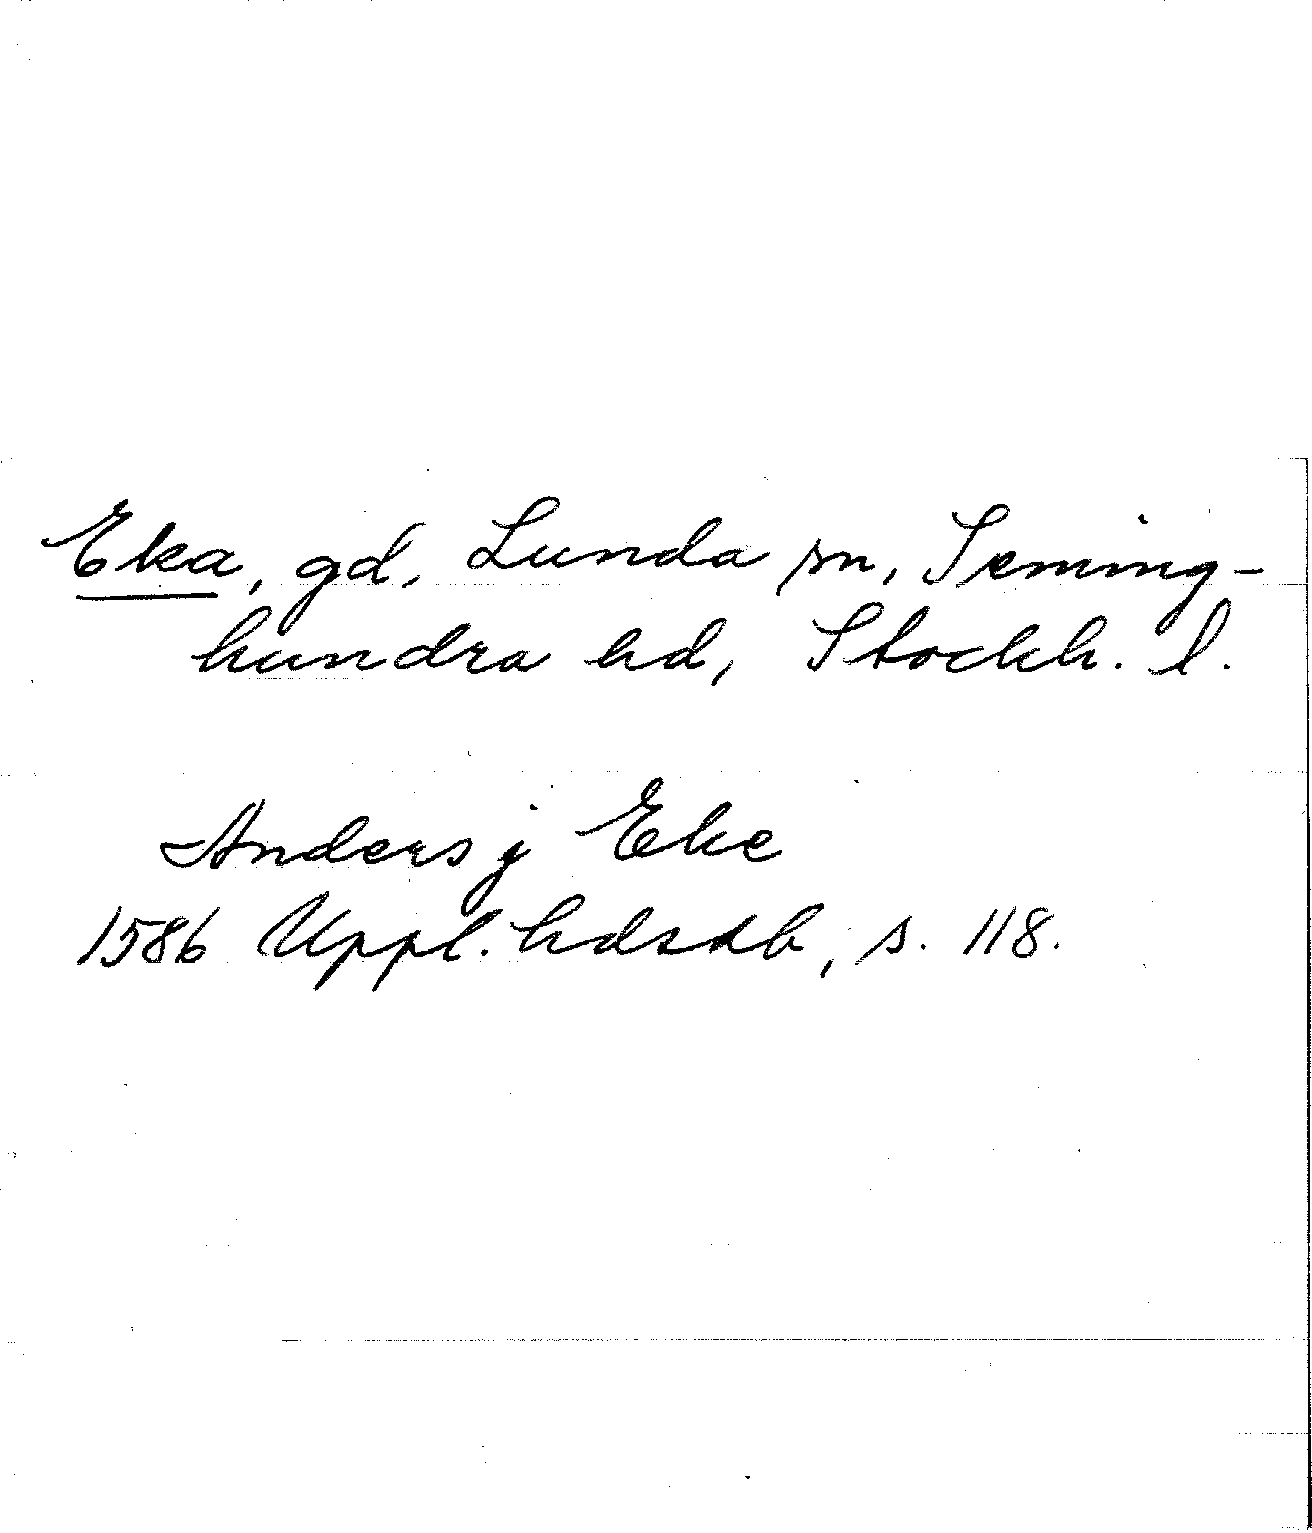 Eka, gd, Lunda sn, Seming-
hundra hd, Stockh. l.
Anders j Eke
1586 Uppl. hdsdb, s. 118.